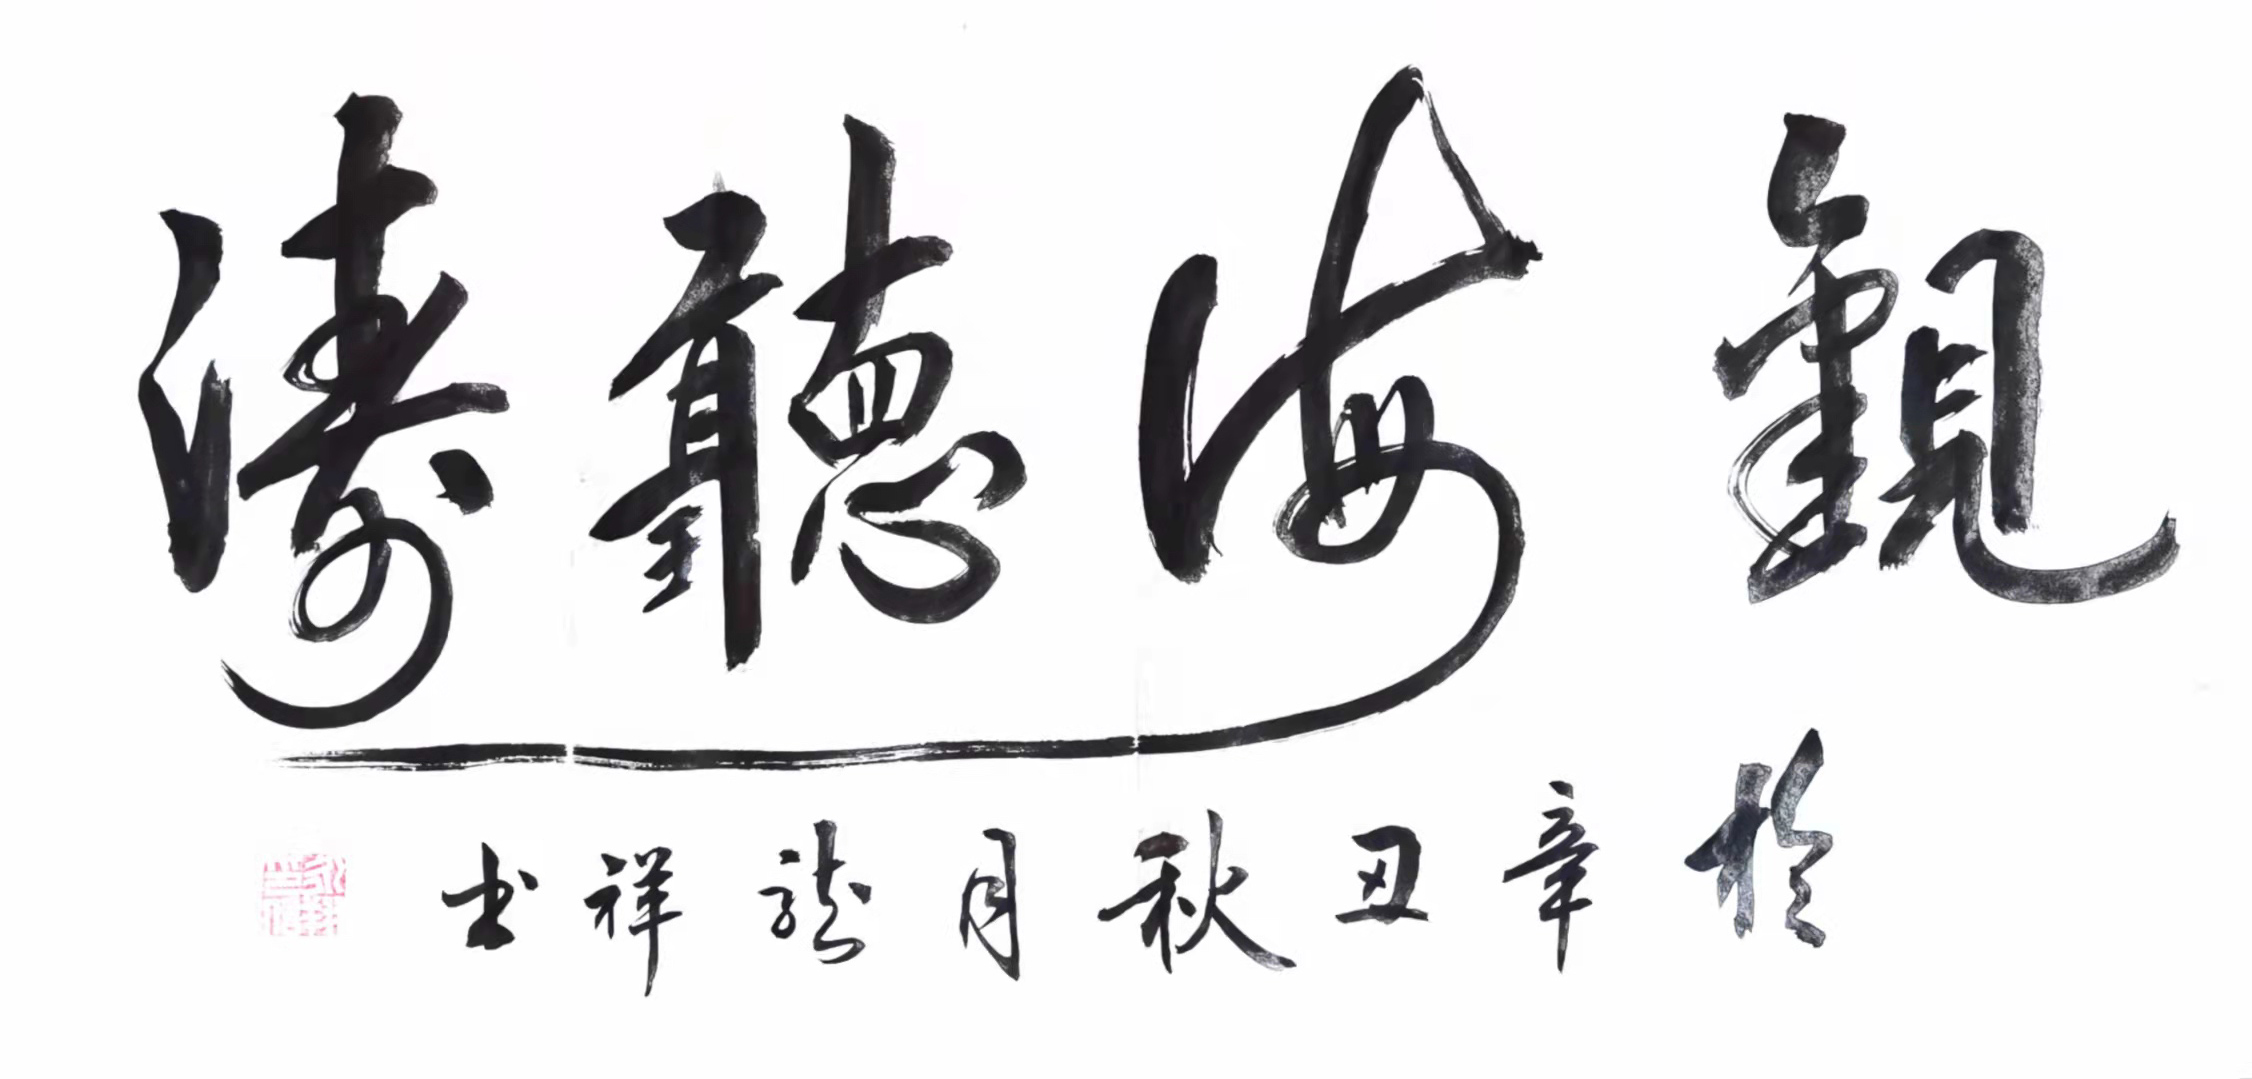 觀海聽濤
於辛丑秋月龍祥书